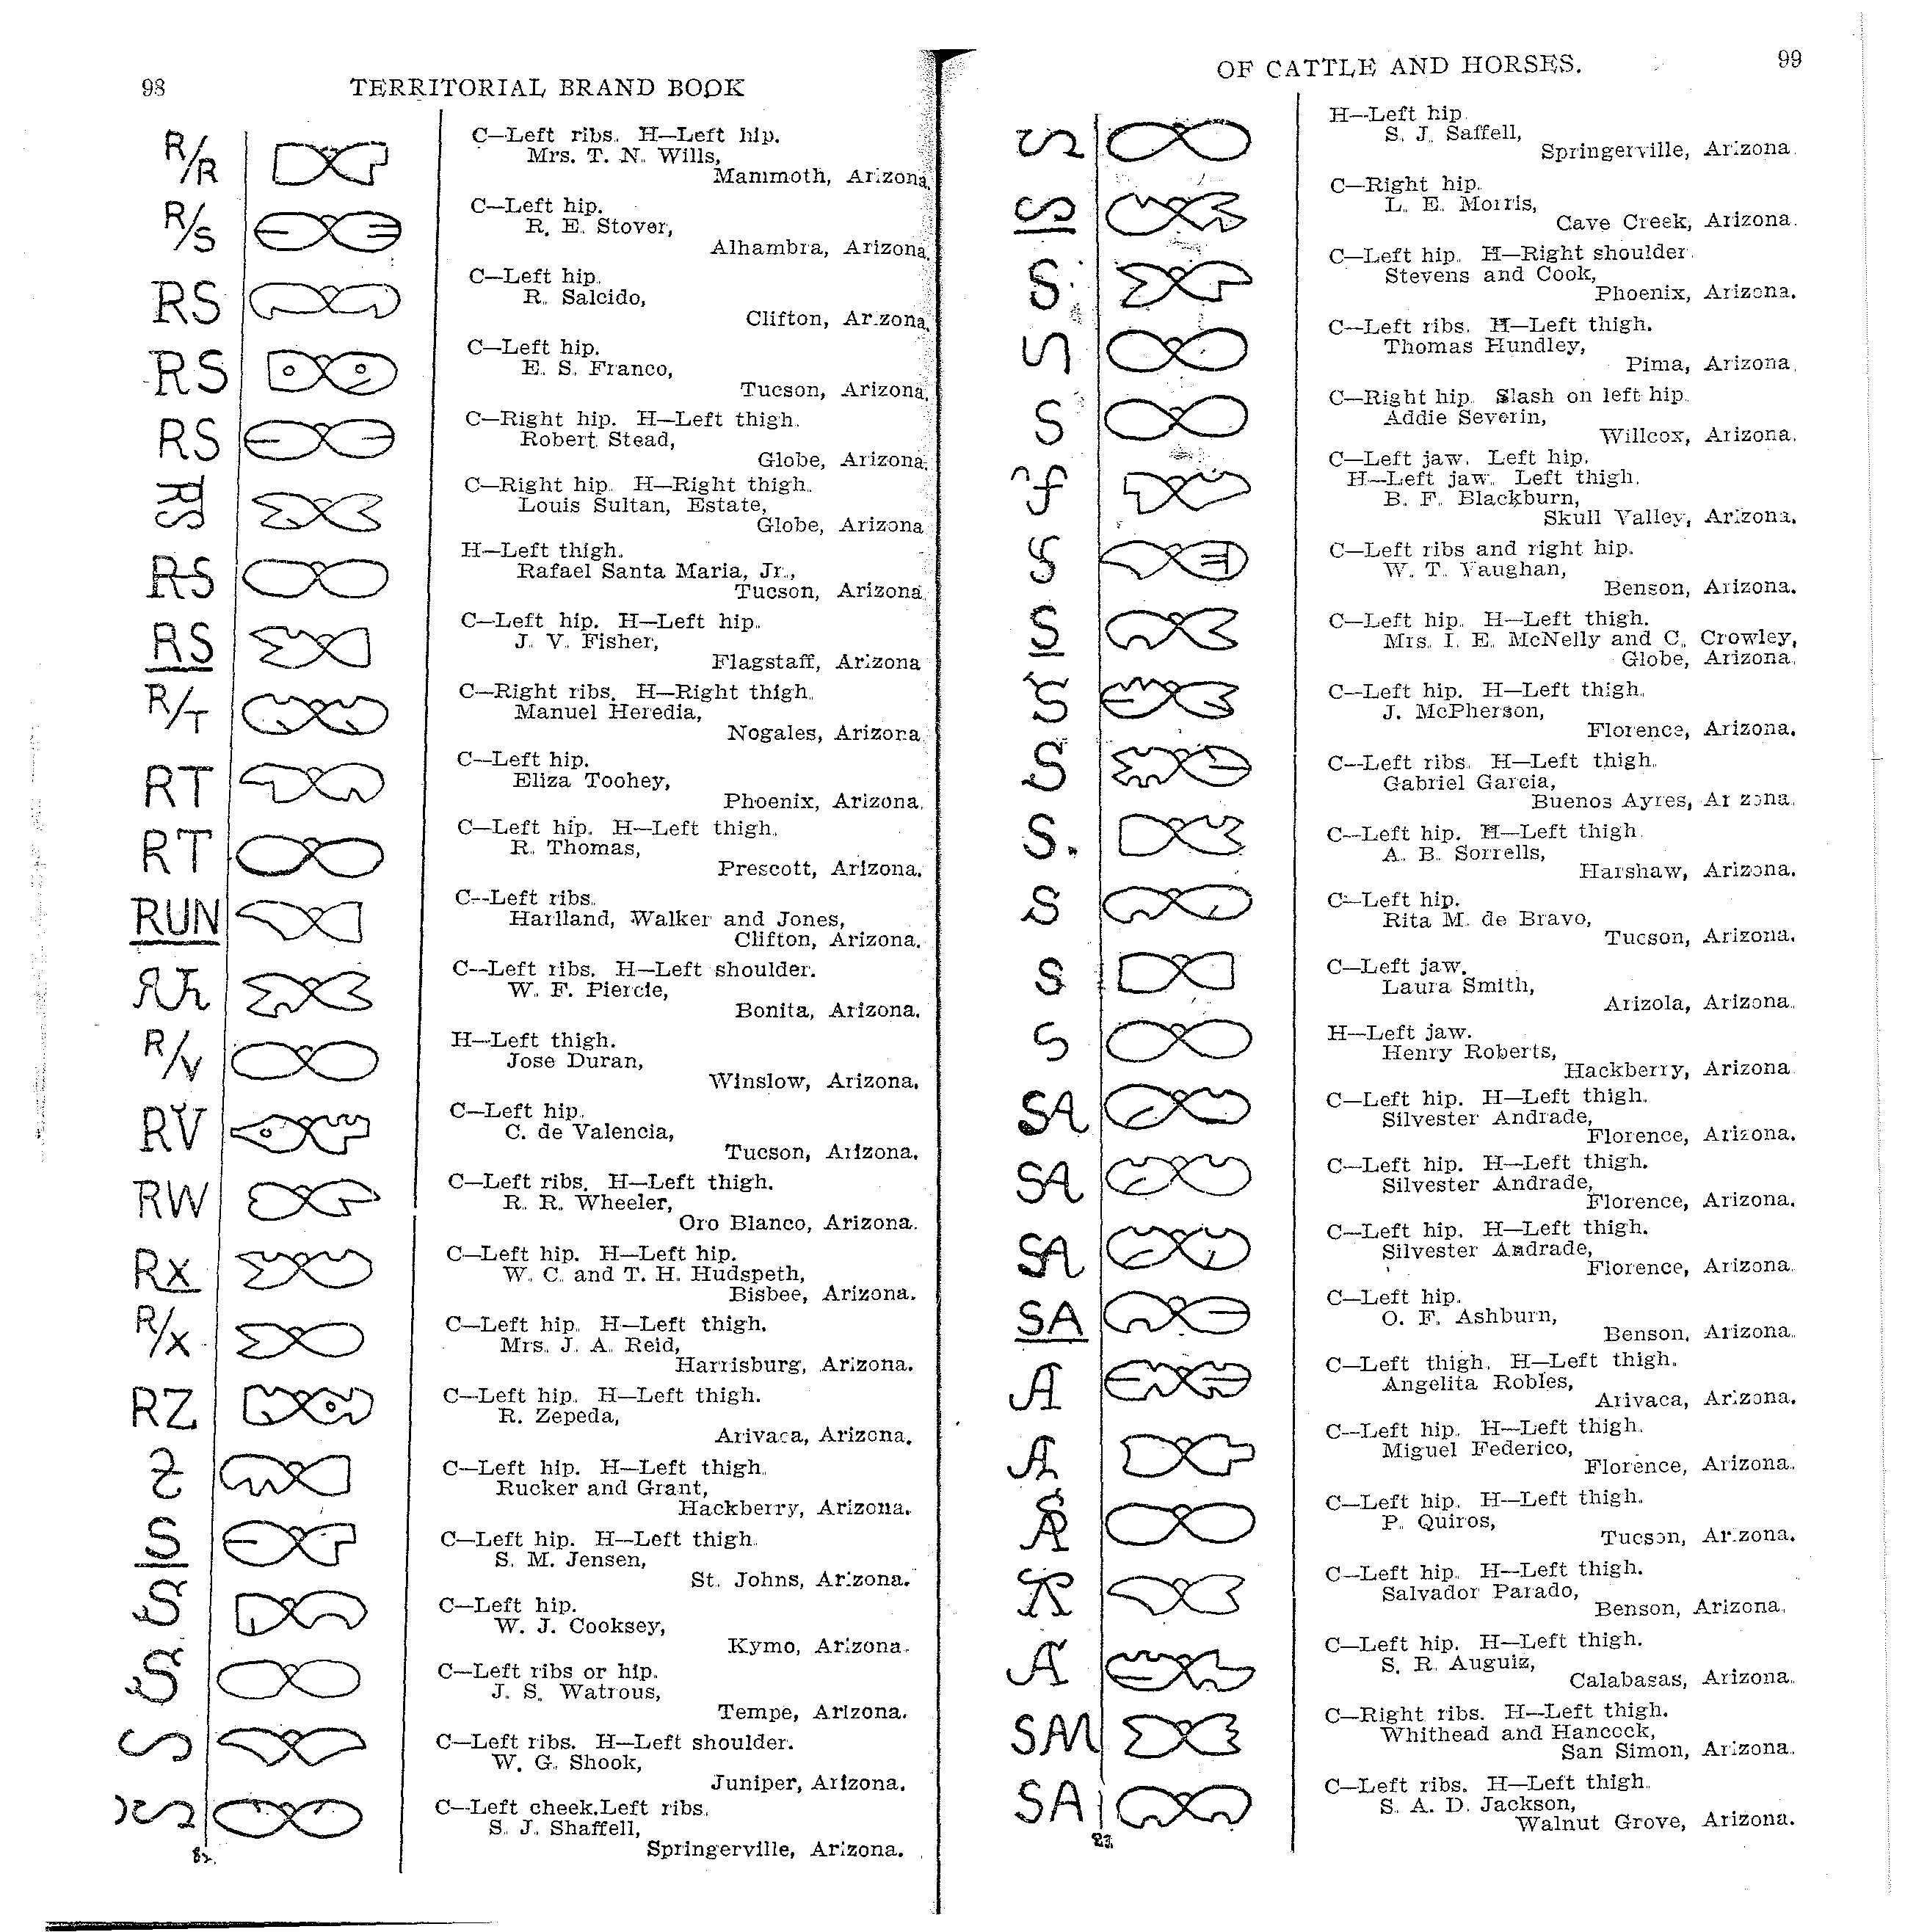 98
TERRITORIAL BRAND BOOK
R/R
C—Left ribs. H—Left hip.
Mrs. T. N. Wills,
Mammoth, Arizona.
R/S
C—Left hip.
R. E. Stover,
Alhambra, Arizona.
RS
C—Left hip.
R. Salcido,
Clifton, Arizona.
RS
C—Left hip.
E. S. Franco,
Tucson, Arizona.
RS
C—Right hip. H—Left thigh.
Robert Stead,
Globe, Arizona.
RS
C—Right hip. H—Right thigh.
Louis Sultan, Estate,
Globe, Arizona
RS
H—Left thigh.
Rafael Santa Maria, Jr.,
Tucson, Arizona.
RS
C—Left hip. H—Left hip.
J. V. Fisher,
Flagstaff, Arizona
R/T
C—Right ribs. H—Right thigh.
Manuel Heredia,
Nogales, Arizona.
RT
C—Left hip.
Eliza Toohey,
Phoenix, Arizona.
RT
C—Left hip. H—Left thigh.
R. Thomas,
Prescott, Arizona.
RUN
C—Left ribs.
Harlland, Walker and Jones,
Clifton, Arizona.
C—Left ribs. H—Left shoulder.
W. F. Piercle,
Bonita, Arizona.
R/V
H—Left thigh.
Jose Duran,
Winslow, Arizona.
RV
C—Left hip.
C. de Valencia,
Tucson, Arizona.
RW
C—Left ribs. H—Left thigh.
R. R. Wheeler,
Oro Blanco, Arizona.
RX
C—Left hip. H—Left hip.
W. C. and T. H. Hudspeth,
Bisbee, Arizona.
R/X
C—Left hip. H—Left thigh.
Mrs. J. A. Reid,
Harrisburg, Arizona.
RZ
C—Left hip. H—Left thigh.
R. Zepeda,
Arivaca, Arizona.
C—Left hip. H—Left thigh.
Rucker and Grant,
Hackberry, Arizona.
S
C—Left hip. H—Left thigh.
S. M. Jensen,
St. Johns, Arizona.
S
C—Left hip.
W. J. Cooksey,
Kymo, Arizona.
S
C—Left ribs or hip.
J. S. Watrous,
Tempe, Arizona.
S
C—Left ribs. H—Left shoulder.
W. G. Shook,
Juniper, Arizona.
C—Left cheek. Left ribs.
S. J. Shaffell,
Springerville, Arizona.
82.
OF CATTLE AND HORSES.
99
S
H—Left hip.
S. J. Saffell,
Springerville, Arizona.
S
C—Right hip.
L. E. Morris,
Cave Creek, Arizona.
S
C—Left hip. H—Right shoulder.
Stevens and Cook,
Phoenix, Arizona.
C—Left ribs. H—Left thigh.
Thomas Hundley,
Pima, Arizona.
S
C—Right hip. Slash on left hip.
Addie Severin,
Willcox, Arizona.
C—Left jaw. Left hip.
H—Left jaw. Left thigh.
B. F. Blackburn,
Skull Valley, Arizona.
C—Left ribs and right hip.
W. T. Vaughan,
Benson, Arizona.
S
C—Left hip. H—Left thigh.
Mrs. I. E. McNelly and C. Crowley,
Globe, Arizona.
S
C—Left hip. H—Left thigh.
J. McPherson,
Florence, Arizona.
S
C—Left ribs. H—Left thigh.
Gabriel Garcia,
Buenos Ayres, Arizona.
S.
C—Left hip. H—Left thigh.
A. B. Sorrells,
Harshaw, Arizona.
S
C—Left hip.
Rita M. de Bravo,
Tucson, Arizona.
S
C—Left jaw.
Laura Smith,
Arizola, Arizona.
S
H—Left jaw.
Henry Roberts,
Hackberry, Arizona
SA
C—Left hip. H—Left thigh.
Silvester Andrade,
Florence, Arizona.
SA
C—Left hip. H—Left thigh.
Silvester Andrade,
Florence, Arizona.
SA
C—Left hip. H—Left thigh.
Silvester Andrade,
Florence, Arizona.
SA
C—Left hip.
O. F. Ashburn,
Benson, Arizona.
A
C—Left thigh. H—Left thigh.
Angelita Robles,
Arivaca, Arizona.
A
C—Left hip. H—Left thigh.
Miguel Federico,
Florence, Arizona.
C—Left hip. H—Left thigh.
P. Quiros,
Tucson, Arizona.
C—Left hip. H—Left thigh.
Salvador Parado,
Benson, Arizona.
A
C—Left hip. H—Left thigh.
S. R. Auguiz,
Calabasas, Arizona.
SM
C—Right ribs. H—Left thigh.
Whithead and Hancock,
San Simon, Arizona.
SA
C—Left ribs. H—Left thigh.
S. A. D. Jackson,
Walnut Grove, Arizona.
83